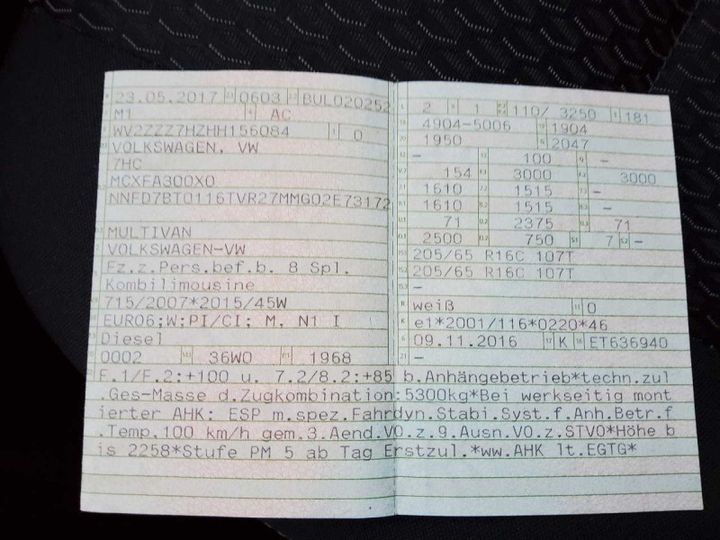 23.05.2017 0603 BUL020252
M1 AC
WV2ZZZ7HZHH156084 0
VOLKSWAGEN, VW
7HC
MCXFA300X0
NNFD7BT0116TVR27MMG02E73172
MULTIVAN
VOLKSWAGEN-VW
Fz.z.Pers.bef.b. 8 Spl.
Kombilimousine
715/2007*2015/45W
EURO6;W;PI/CI; M, N1 I
Diesel
0002 36W0 1968
2 1 110/ 3250 181
4904-5006 1904
1950 2047
- 100 -
154 3000 3000
1610 1515 -
1610 1515 -
71 2375 71
2500 750 7 -
205/65 R16C 107T
205/65 R16C 107T
-
weiß 0
e1*2001/116*0220*46
09.11.2016 K ET636940
-
F.1/F.2:+100 u. 7.2/8.2:+85 b.Anhängebetrieb*techn.zul
.Ges-Masse d.Zugkombination:5300kg*Bei werkseitig mont
ierter AHK: ESP m.spez.Fahrdyn.Stabi.Syst.f.Anh.Betr.f
.Temp.100 km/h gem.3.Aend.VO.z.9.Ausn.VO.z.STVO*Höhe b
is 2258*Stufe PM 5 ab Tag Erstzul.*ww.AHK lt.EGTG*